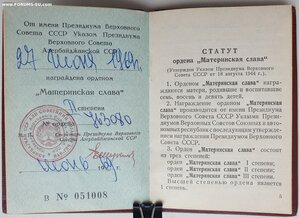 От имени Президиума Верховного
Совета СССР Указом Президиума
Верховного Совета
Азербайджанской ССР
27 июня 196
награждена орденом
„Материнская слава“
II степени
№ 763080
Секретарь Президиума Верховного
Совета Азербайджанской ССР
В № 051008
СТАТУТ
ордена „Материнская слава“
(Утвержден Указом Президиума Верховного
Совета СССР от 18 августа 1944 г.)
1. Орденом „Материнская слава“
награждаются матери, родившие и воспитавшие
семь, восемь и девять детей.
2. Награждение орденом „Материнская
слава“ производится от имени Президиума
Верховного Совета СССР Указами Президиумов
Верховных Советов союзных и автономных
республик в последующим утверждением
награждения Президиумом Верховного
Совета СССР.
3. Орден „Материнская слава“ состоит
из трех степеней:
орден „Материнская слава“ I степени;
орден „Материнская слава“ II степени;
орден „Материнская слава“ III степени.
Высшей степенью ордена является
I степень.
5